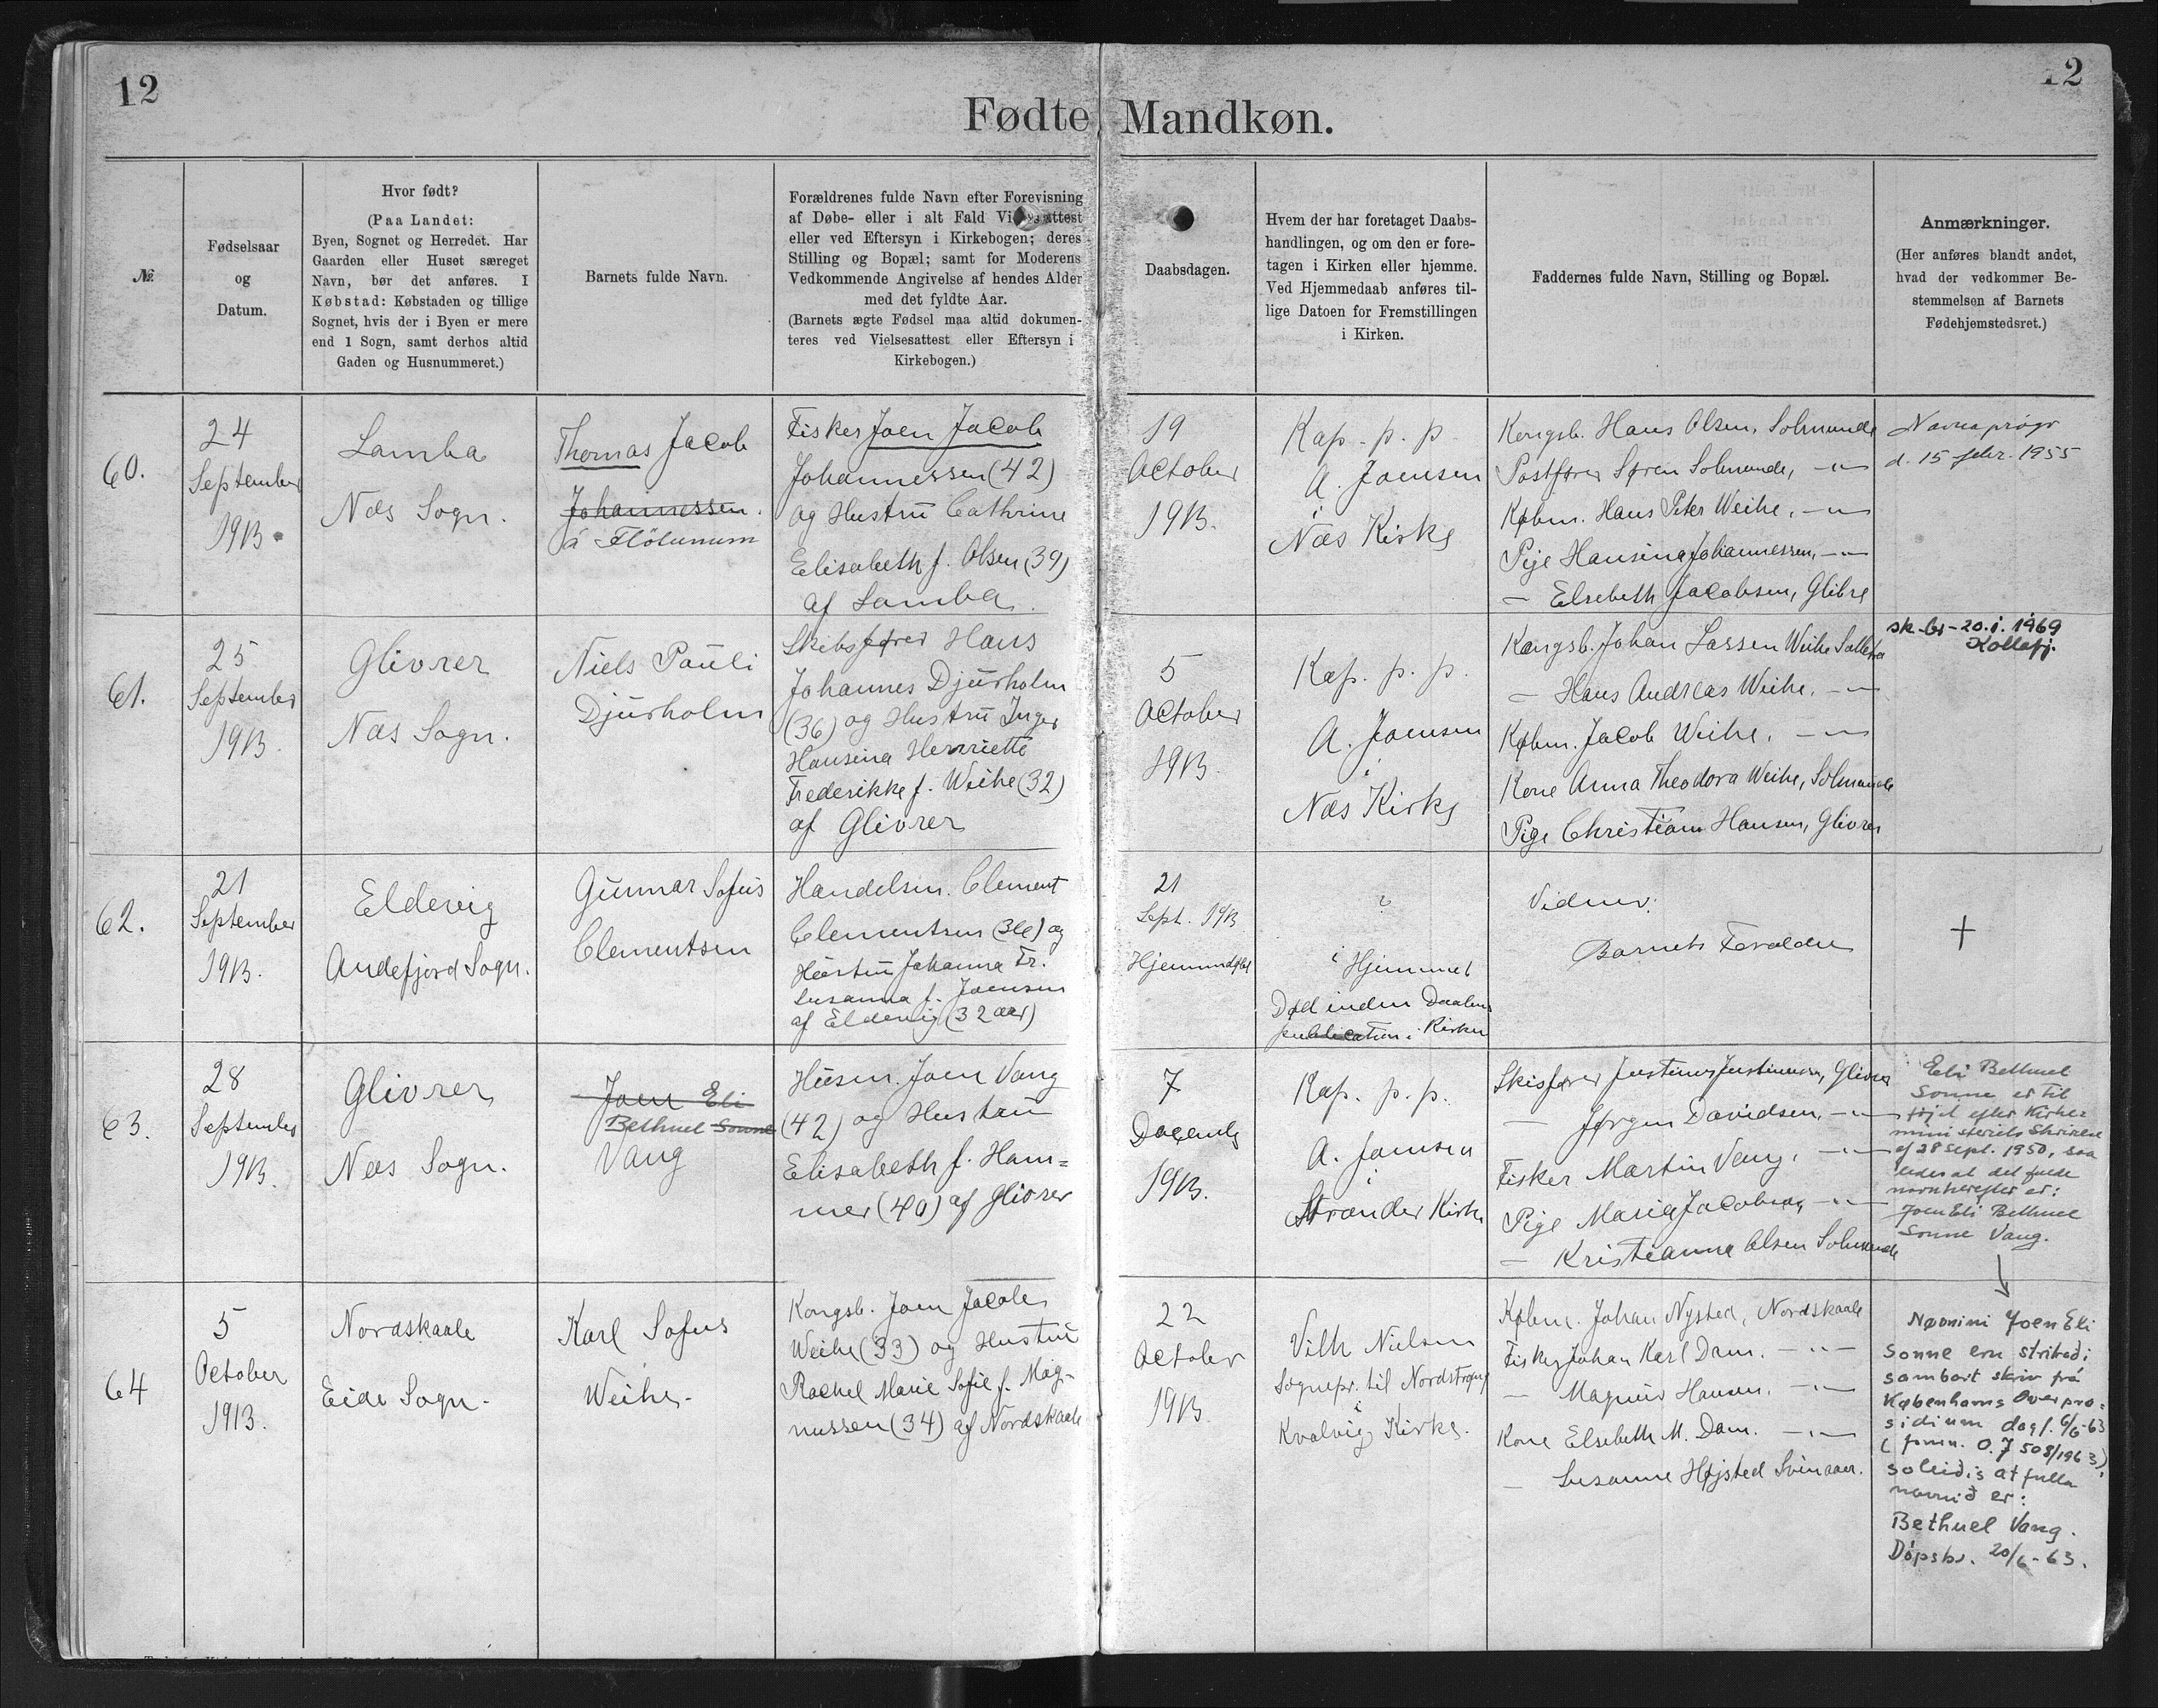 12
12
Fødte Mandkøn.
№
Fødselsaar
og
Datum.
Hvor født?
(Paa Landet:
Byen, Sognet og Herredet. Har
Gaarden eller Huset særeget
Navn, bør det anføres. I
Købstad: Købstaden og tillige
Sognet, hvis der i Byen er mere
end 1 Sogn, samt derhos altid
Gaden og Husnummeret.)
Barnets fulde Navn.
Forældrenes fulde Navn efter Forevisning
af Døbe- eller i alt Fald Vielsesattest
eller ved Eftersyn i Kirkebogen; deres
Stilling og Bopæl; samt for Moderens
Vedkommende Angivelse af hendes Alder
med det fyldte Aar.
(Barnets ægte Fødsel maa altid dokumen-
teres ved Vielsesattest eller Eftersyn i
Kirkebogen.)
Daabsdagen.
Hvem der har foretaget Daabs-
handlingen, og om den er fore-
tagen i Kirken eller hjemme.
Ved Hjemmedaab anføres til-
lige Datoen for Fremstillingen
i Kirken.
Faddernes fulde Navn, Stilling og Bopæl.
Anmærkninger.
(Her anføres blandt andet,
hvad der vedkommer Be-
stemmelsen af Barnets
Fødehjemstedsret.)
60.
24
September
1913.
Lamba
Næs Sogn.
Thomas Jacob
Johannessen.
á Fløtunum
Fisker Joen Jacob
Johannessen (42)
og Hustru Cathrine
Elisabeth f. Olsen (39)
af Lamba.
19
October
1913.
Kap. p. p.
A. Joensen
i
Næs Kirke
Kongsb. Hans Olsen, Solmunde
Postfører Søren Solmunde, -"-
Købm. Hans Peter Weihe, -"-
Pige Hansina Johannessen, -"-
- Elsebeth Jacobsen, Glibre
Navnaprógv
d. 15 febr. 1955
61.
25
September
1913.
Glivrer
Næs Sogn.
Niels Pauli
Djurholm
Skibsfører Hans
Johannes Djurholm
(36) og Hustru Inger
Hansina Henriette
Frederikke f. Weihe (32)
af Glivrer
5
October
1913.
Kap. p. p.
A. Joensen
i
Næs Kirke
Kongsb. Johan Lassen Weihe
- Hans Andreas Weihe, -"-
Købm. Jacob Weihe, -"-
Kone Anna Theodora Weihe, Solmunde
Pige Christiane Hansen, Glivrer
sk-br-20.i.1969
Kollafj.
62.
21
September
1913.
Eldevig
Andefjord Sogn.
Gunnar Sofus
Clementsen
Handelsm. Clement
Clementsen (36) og
Hustru Johanna Fr.
Susanna f. Joensen
af Eldevig (32 aar)
21
Sept. 1913
Hjemmedøbt
?
i Hjemmet
Død inden Daabens
publication i Kirken
Vidner:
Barnets Forældre
+
63.
28
September
1913.
Glivrer
Næs Sogn.
Joen Eli
Bethuel Sonne
Vang
Husm. Joen Vang
(42) og Hustru
Elisabeth f. Ham=
mer (40) af Glivrer
7
Decemb
1913.
Kap. p. p.
A. Joensen
i
Strander Kirke
Skibsfører Justinus Justinussen, Glivrer
- Jørgen Davidsen, -"-
Fisker Martin Vang, -"-
Pige Maria Jacobsen, -"-
- Kristianna Olsen Solmunde
Eli Bethuel
Sonne er til
føjet efter Kirke=
ministeriets Skrivelse
af 28 Sept. 1950, saa
ledes at det fulde
navn herefter er:
Joen Eli Bethuel
Sonne Vang.
64
5
October
1913.
Nordskaale
Eide Sogn.
Karl Sofus
Weihe.
Kongsb. Joen Jacob
Weihe (33) og Hustru
Rachel Marie Sofie f. Mag-
nussen (34) af Nordskaale
22
October
1913.
Vilh Nielsen
Sognepr. til Nordstrømø
i
Kvalvig Kirke.
Købm. Johan Nysted, Nordskaale
Fisker Johan Karl Dam. -"-
- Magnus Hansen. -"-
Kone Elsebeth M. Dam. -"-
- Susanne Højsted Svinaaer.
Nøvnini Joen Eli
Sonne eru strikað i
sambart skriv frá
Københavns Overpræ=
sidium dagf. 6/6-63
( O. J 508/1963),
soleiðis at fulla
navnið er:
Bethuel Vang.
Dópsbr. 20/6-63.